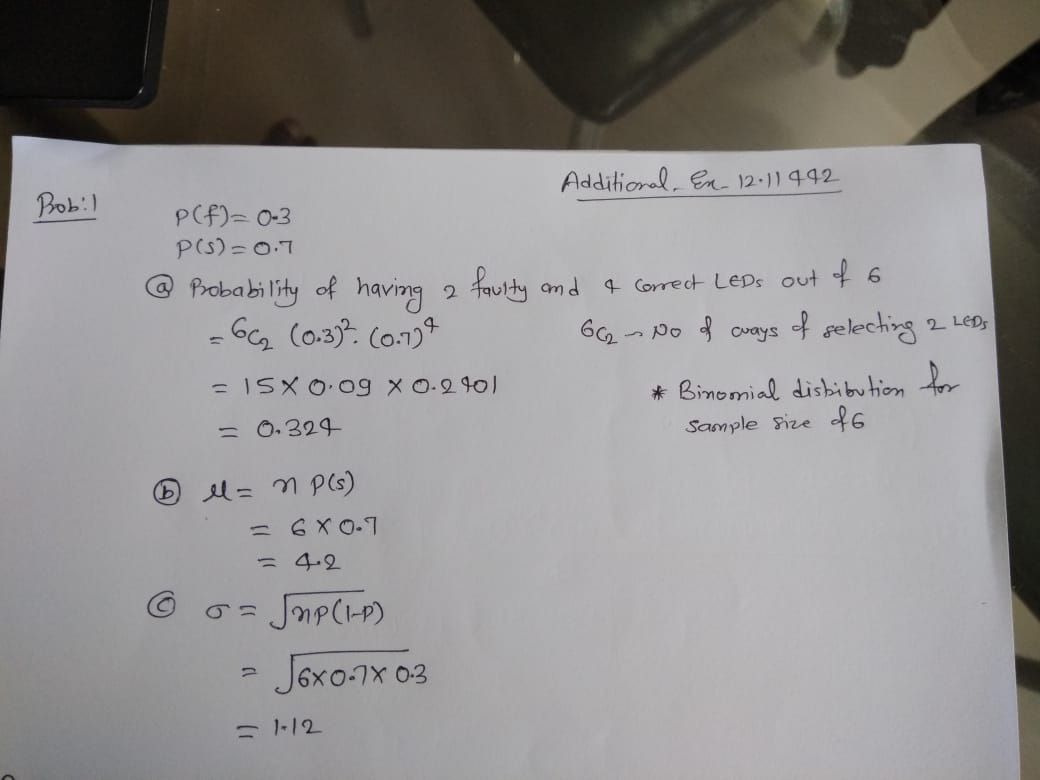 Additional Ex- 12.11 442
Prob:1
P(f)= 0.3
P(s)= 0.7
ⓐ Probability of having 2 faulty and 4 correct LEDs out of 6
= 6C₂ (0.3)². (0.7)⁴
6C₂ → No of ways of selecting 2 LEDs
= 15 X 0.09 X 0.2401
* Binomial distribution for
= 0.324
Sample size of 6
ⓑ μ = n P(s)
= 6 X 0.7
= 4.2
ⓒ σ = √np(1-p)
= √6X0.7X 0.3
= 1.12